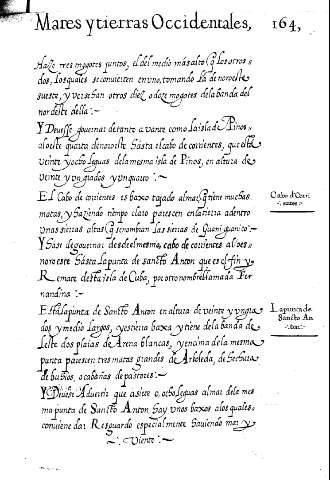 Mares y tierras Occidentales, 164,
Haze tres mogotes juntos, el del medio mas alto q̃ los otros
dos, los quales se conuierten en vno, tomando la de noroeste
sueste, y verse han otros diez o doze mogotes de la banda del
nordeste della:~
Y Deuisse gouernar de tanto auante como la isla de Pinos
al oeste quarto de noroeste hasta el cabo de corrientes, que esta
veinte y ocho leguas de la mesma isla de Pinos, en altura de
veinte y vn grados y vn quarto:~
El Cabo de corrientes es baxo tajado al mar, q̃ tiene muchas
matas, y haziendo tiempo claro parescen en la tierra adentro
vnas sierras altas q̃ se nombran las sierras de Guaniguanico:~
Y has de gouernar desde el mesmo, cabo de corrientes al oes
noroeste hasta la punta de sancto Anton que es el fin y
Remate desta isla de Cuba, por otro nombre llamada Fer
nandina:~
Esta la punta de Sancto Anton en altura de veinte y vn gra
dos y medio largos, y es tierra baxa y tiene de la banda de
Leste dos plaias de Arena blancas, y encima de la mesma
punta parescen tres matas grandes de Arboleda, de hechura
de buhios, o cabañas de pastores:~
Y Deuese Aduertir que a siete o, ocho leguas al mar de la mes
ma punta de Sancto Anton hay vnos baxos a los quales
conuiene dar Resguardo especialmente hauiendo mar y
~: Viento:~
Cabo d'Corri
entes
La punta de
Sancto An
ton: